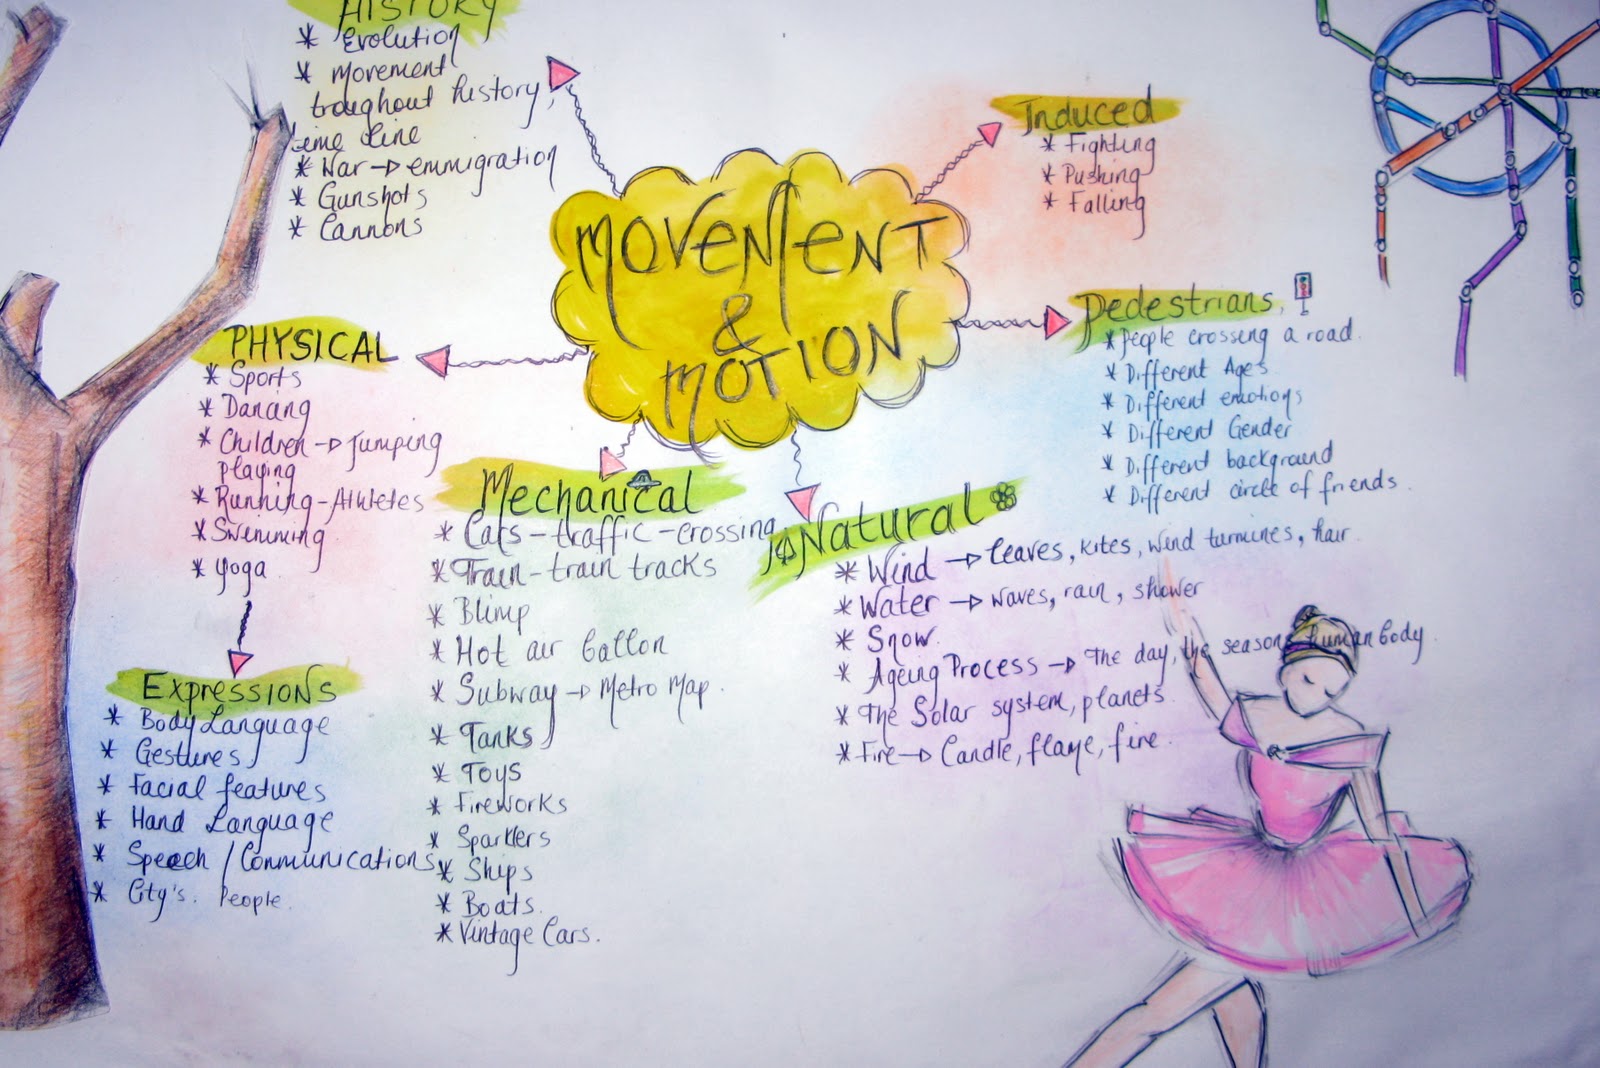 HISTORY
* Evolution
* Movement
troughout history,
time line
* War → emmigration
* Gunshots
* Cannons
MOVEMENT
&
MOTION
Induced
* Fighting
* Pushing
* Falling
Pedestrians,
* People crossing a road.
* Different Ages
* Different emotions
* Different Gender
* Different background
* Different circle of friends.
PHYSICAL
* Sports
* Dancing
* Children → Jumping
playing
* Running - Athletes
* Swimming
* Yoga
Expressions
* Body Language
* Gestures
* Facial features
* Hand Language
* Speech / Communications
* City's. People.
Mechanical
* Cars - traffic - crossing
* Train - train tracks
* Blimp
* Hot air ballon
* Subway → Metro Map.
* Tanks
* Toys
* Fireworks
* Sparklers
* Ships
* Boats.
* Vintage Cars.
Natural
* Wind → leaves, kites, wind turmines, hair.
* Water → waves, rain, shower
* Snow.
* Ageing Process → The day, the seasons, human body.
* The Solar system, planets.
* Fire → Candle, flame, fire.